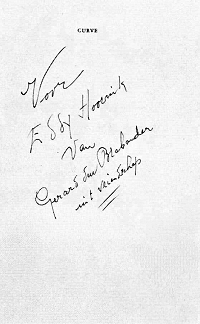 CURVE
Voor
Eddy Hoornik
Van
Gerard den Brabander
in vriendschap